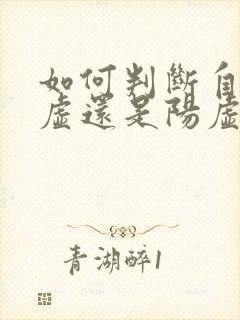 如何判斷自
虛還是陽虛
青湖醉1